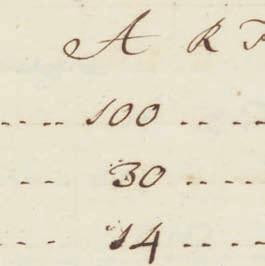 A R P
.... 100 .. ..
.. 30 ....
... 14 ....